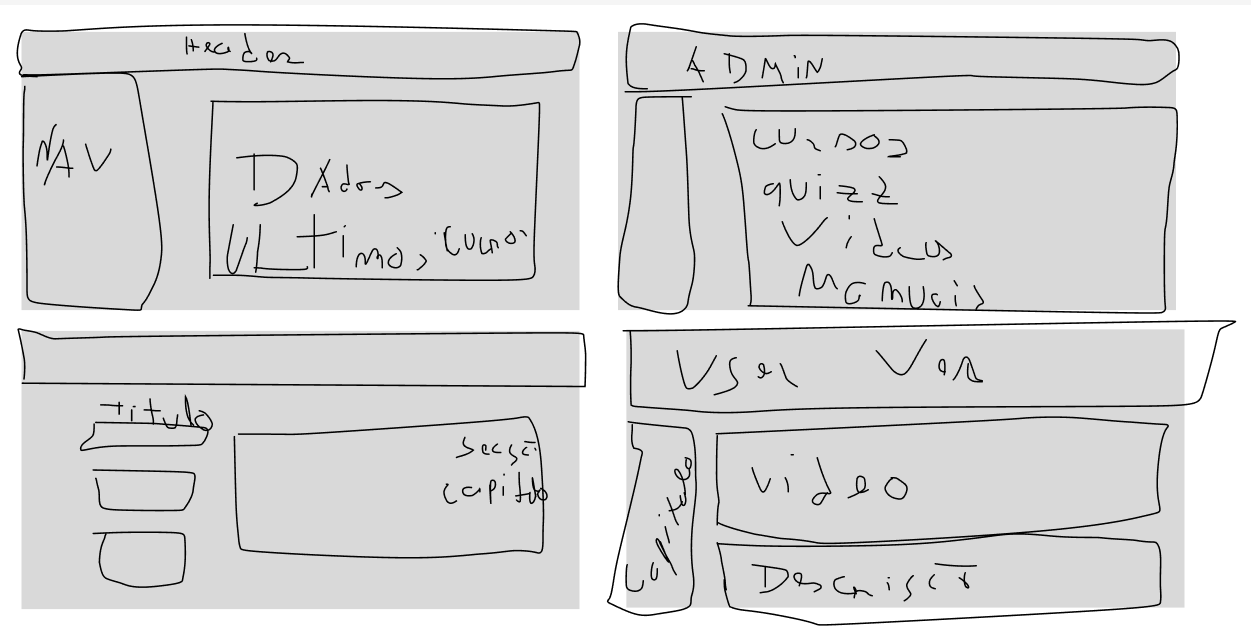 Header
NAV
DAdos
ULtimos cursos
ADMiN
cursos
quizz
Videos
Manuais
titulo
secsã
capitulo
User Ver
capitulo
video
Descriscã